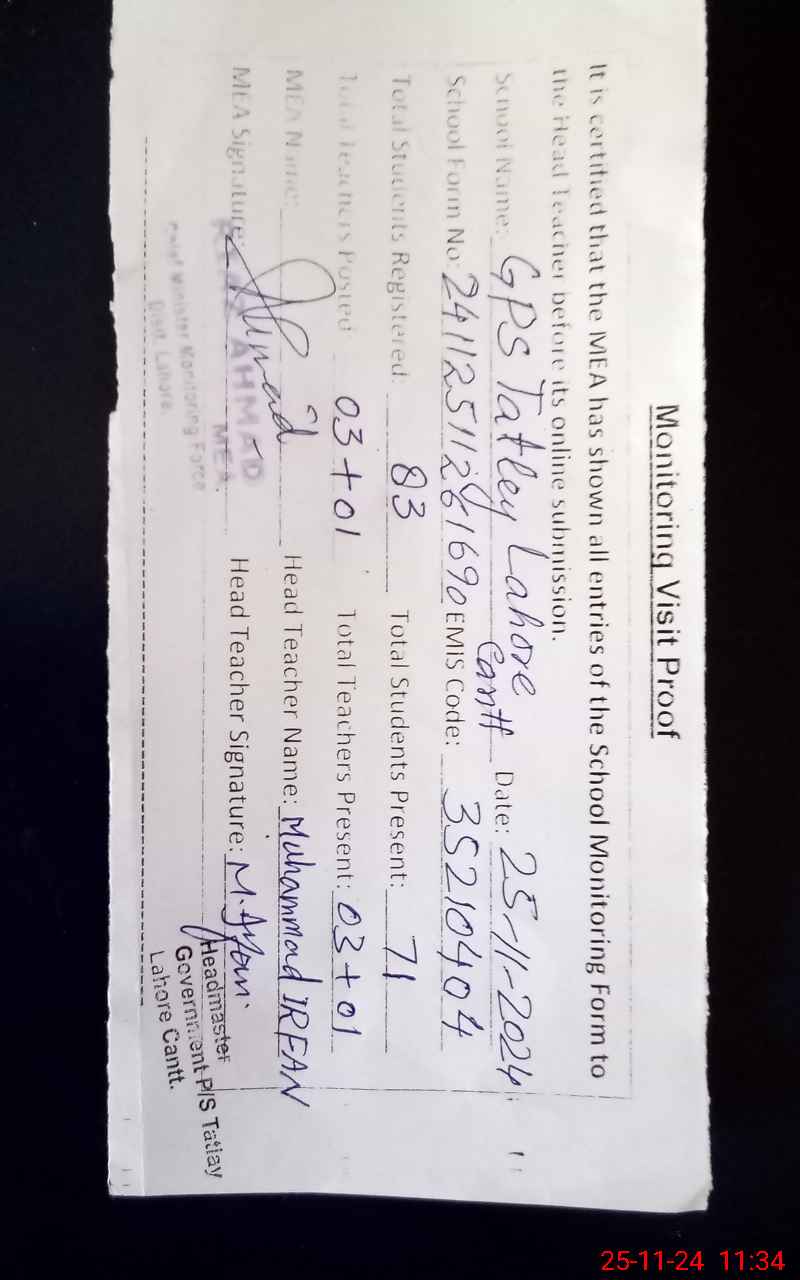 Monitoring Visit Proof
It is certified that the MEA has shown all entries of the School Monitoring Form to
the Head Teacher before its online submission.
School Name: GPS Tatley Lahore Cantt Date: 25-11-2024
School Form No: 24112511261690 EMIS Code: 35210404
Total Students Registered: 83 Total Students Present: 71
Total Teachers Posted: 03+01 Total Teachers Present: 03+01
MEA Name: Head Teacher Name: Muhammad IRFAN
MEA Signature: Head Teacher Signature: M. Irfan
AHMAD
MEA
Chief Minister Monitoring Force
Distt. Lahore
Headmaster
Government P/S Tatlay
Lahore Cantt.
25-11-24 11:34